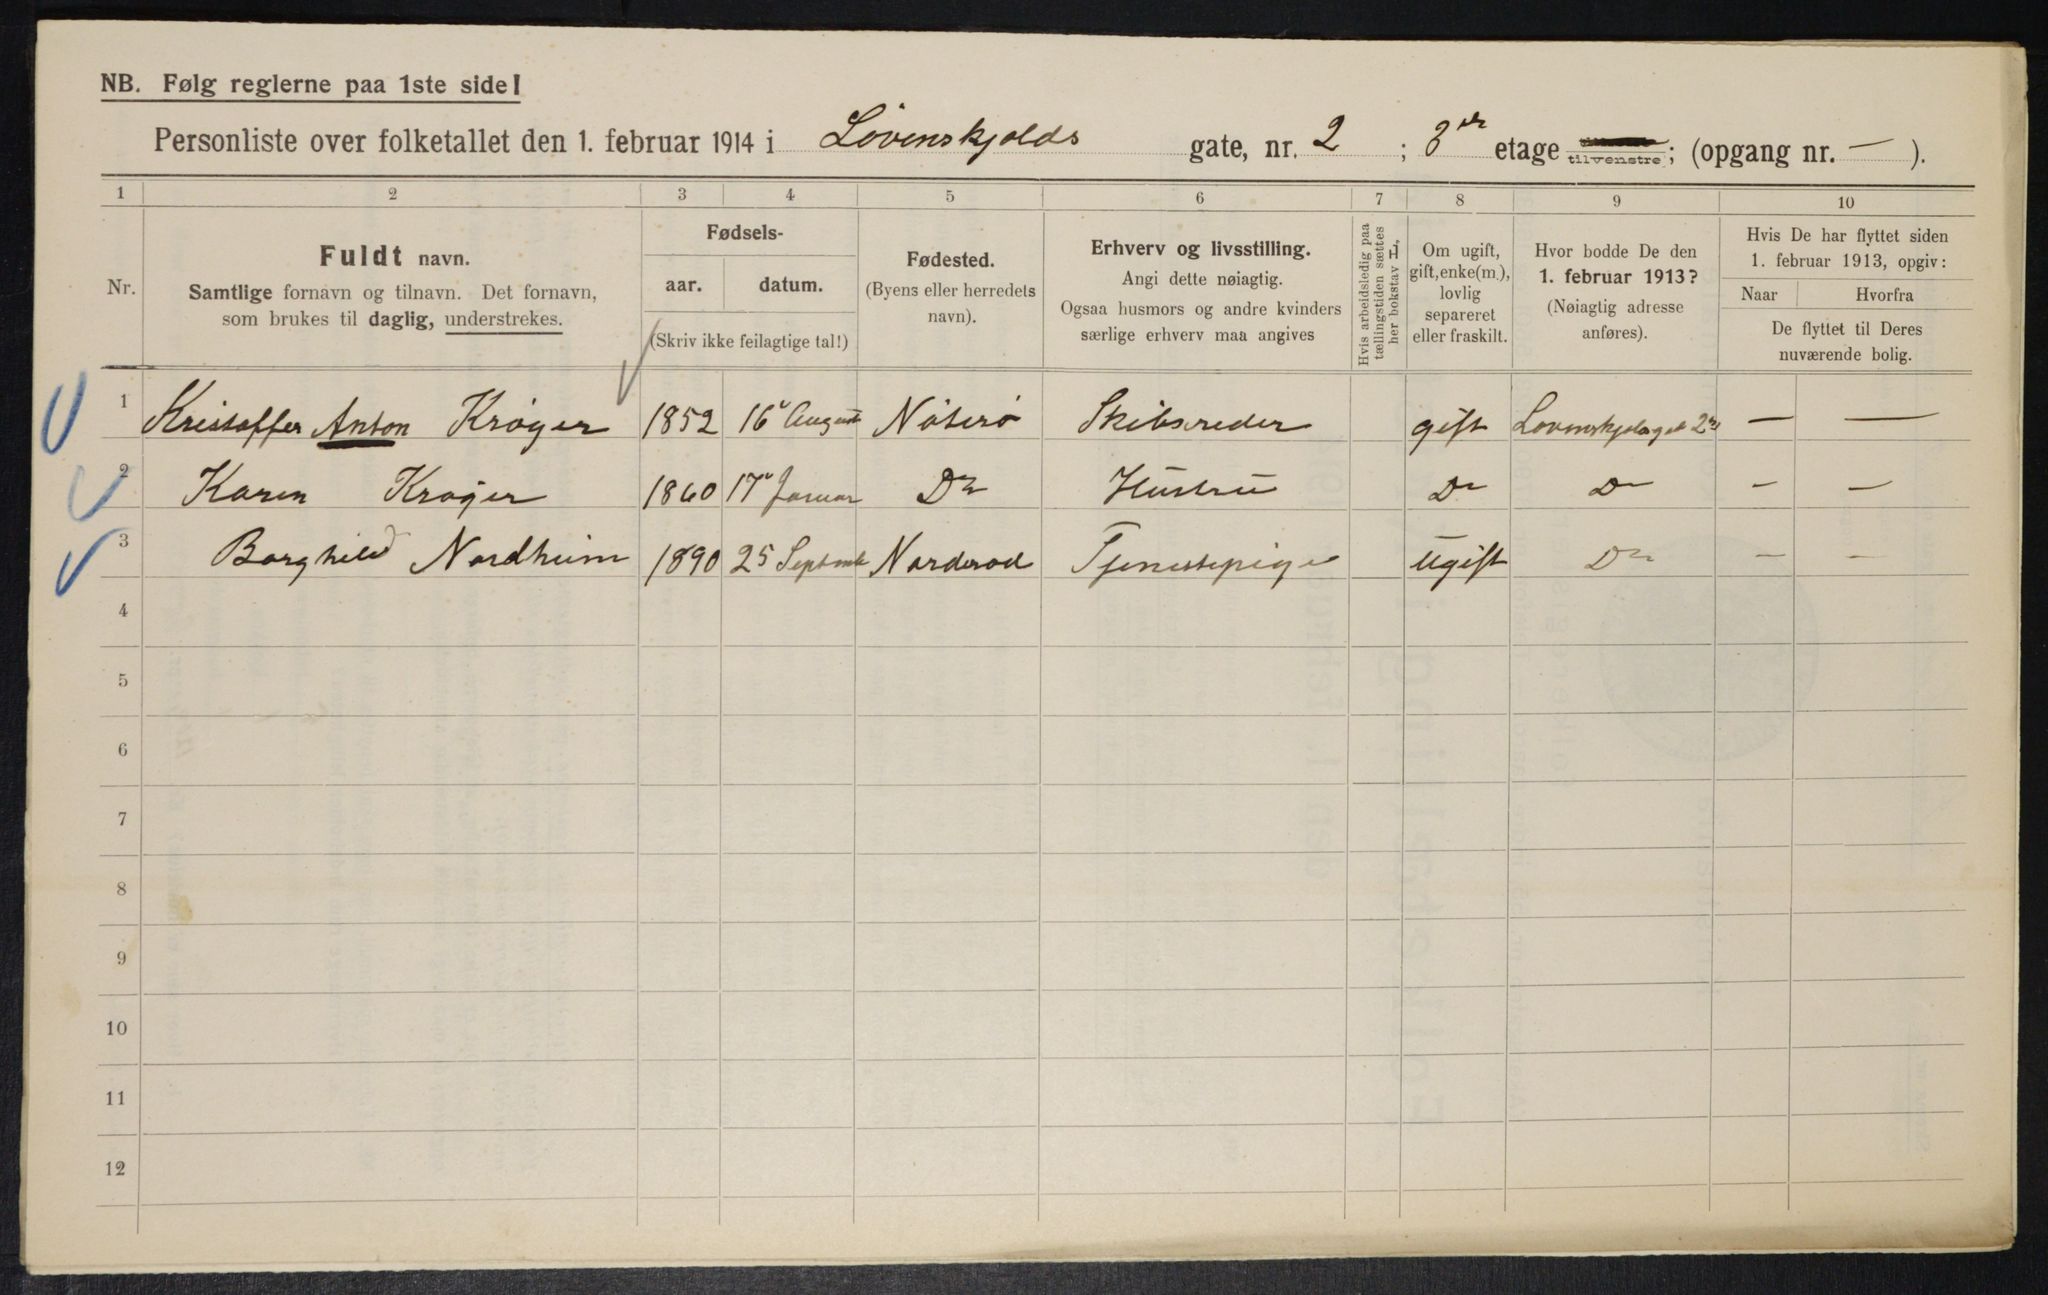 NB. Følg reglerne paa 1ste side!
Personliste over folketallet den 1. februar 1914 i Løvenskjolds gate, nr. 2 ; 3die etage tilvenstre; (opgang nr. — ).
1 2 3 4 5 6 7 8 9 10
Nr.
Fuldt navn.
Samtlige fornavn og tilnavn. Det fornavn,
som brukes til daglig, understrekes.
Fødsels-
aar. datum.
(Skriv ikke feilagtige tal!)
Fødested.
(Byens eller herredets
navn).
Erhverv og livsstilling.
Angi dette nøiagtig.
Ogsaa husmors og andre kvinders
særlige erhverv maa angives
Hvis arbeidsledig paa
tællingstiden sættes
her bokstav L.
Om ugift,
gift, enke(m.),
lovlig
separeret
eller fraskilt.
Hvor bodde De den
1. februar 1913?
(Nøiagtig adresse
anføres).
Hvis De har flyttet siden
1. februar 1913, opgiv:
Naar Hvorfra
De flyttet til Deres
nuværende bolig.
1 Kristoffer Anton Krøger 1852 16 August Nøterø Skibsreder gift Lovenskjoldsgt 2 — —
2 Karen Krøger 1860 17 Januar Do Hustru Do Do — —
3 Borghild Nordheim 1890 25 Septemb Norderod Tjenestepige Ugift Do — —
4
5
6
7
8
9
10
11
12